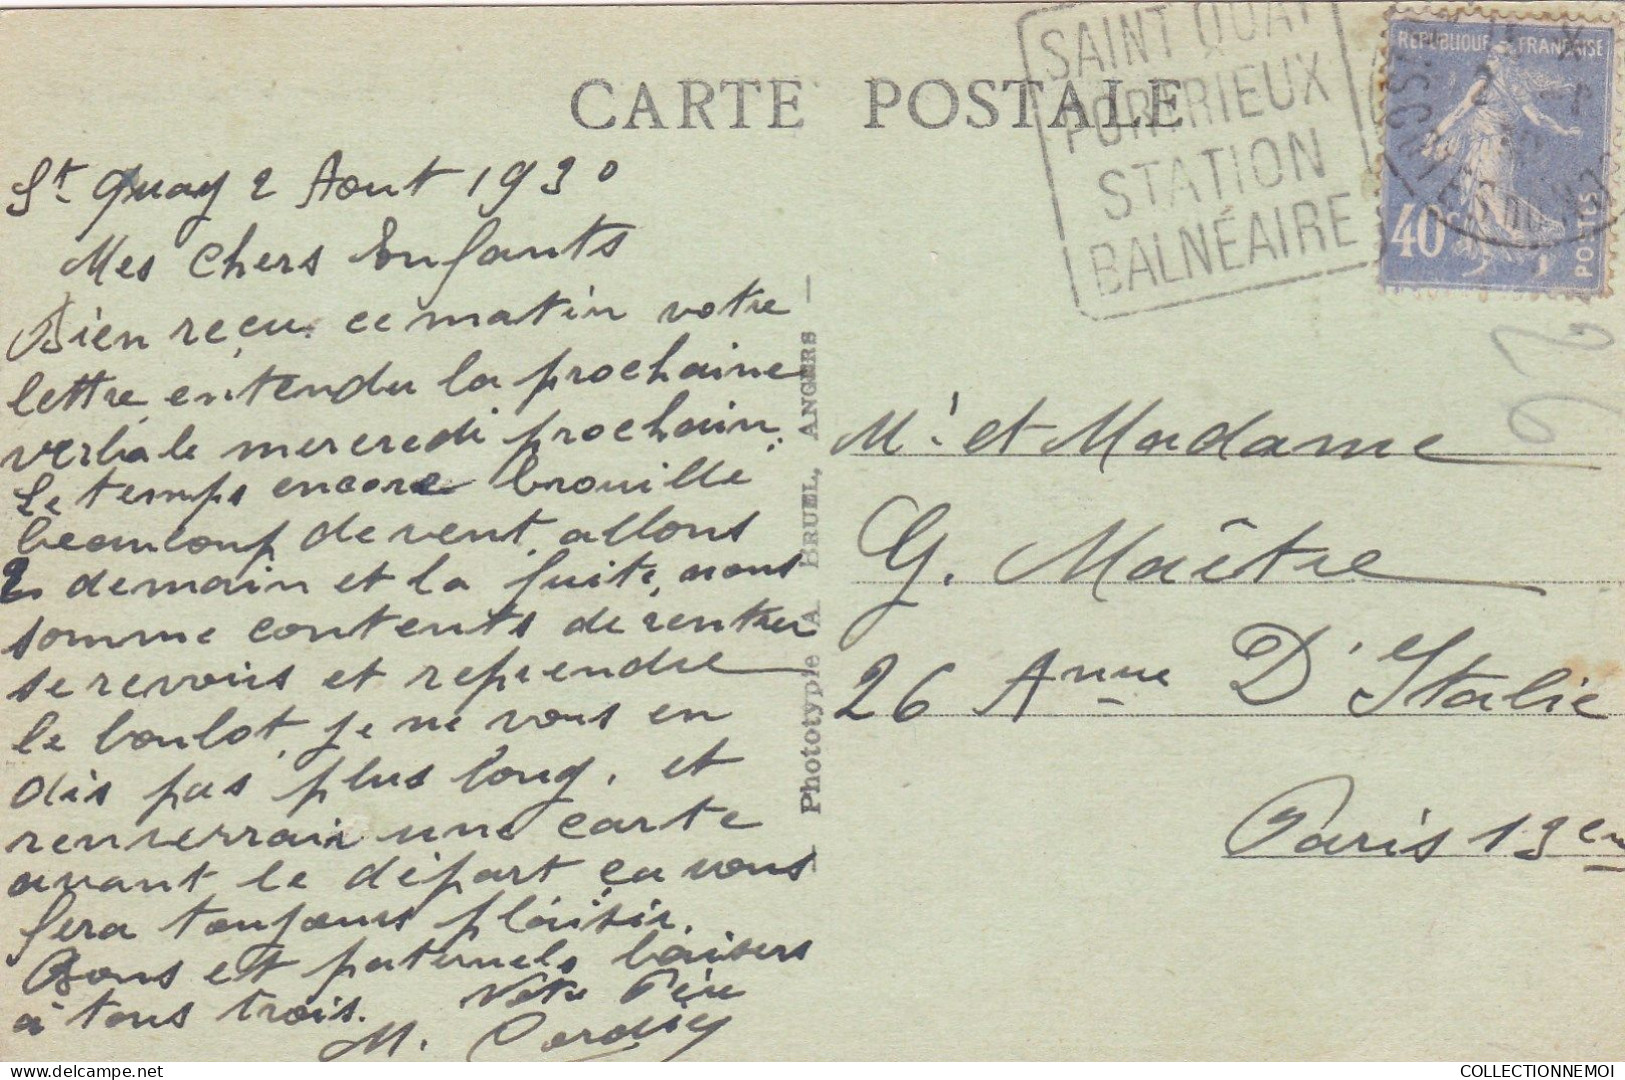 CARTE POSTALE
SAINT QUAY
PORTRIEUX
STATION
BALNÉAIRE
REPUBLIQUE FRANÇAISE
40c
POSTES
St Quay 2 Aout 1930
Mes Chers Enfants
Bien reçu ce matin votre
lettre, entendu la prochaine
verbale mercredi prochain.
Le temps encore brouillé
beaucoup de vent, allons
demain et la suite, nous
somme contents de rentrer
se revoirs et reprendre
le boulot, je ne vous en
dis pas plus long. et
renverrai une carte
avant le départ ça vous
fera toujours plaisir.
Bons et paternels baisers
à tous trois. Votre Père
M.
Phototypie A. BRUEL, ANGERS
Mr. et Madame
G. Maître
26 Avnue D'Italie
Paris 13em
COLLECTIONNEMOI